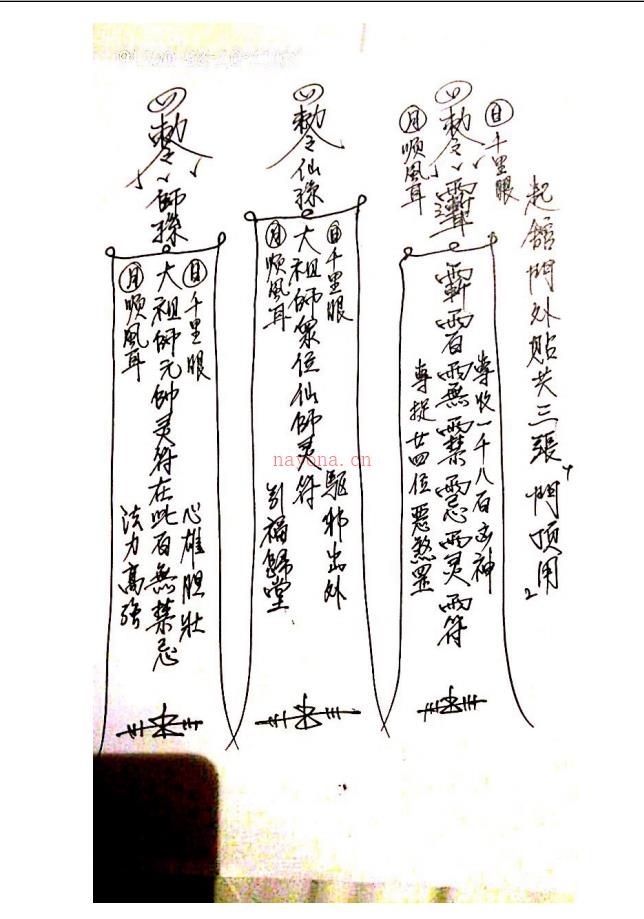 起舘門外貼共三張 門頂用
日 千里眼
敕令
月 順風耳
專收一千八百凶神
專捉廿四位惡煞罡
敕令仙孫
日 千里眼
大祖師衆位仙師灵符
月 順風耳
驅邪出外
引福歸堂
敕令師孫
日 千里眼
大祖師元帥灵符在此百無禁忌
月 順風耳
心雄胆壯
法力高强
nayona.cn